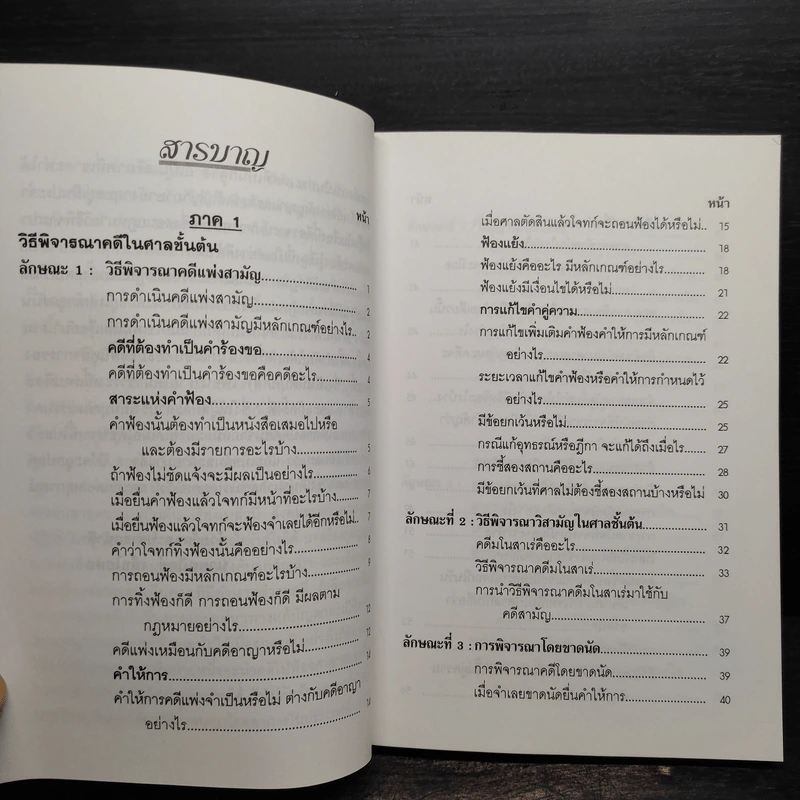 สารบาญ
ภาค 1
หน้า
วิธีพิจารณาคดีในศาลชั้นต้น
ลักษณะ 1 : วิธีพิจารณาคดีแพ่งสามัญ 1
การดำเนินคดีแพ่งสามัญ 2
การดำเนินคดีแพ่งสามัญมีหลักเกณฑ์อย่างไร 2
คดีที่ต้องทำเป็นคำร้องขอ 4
คดีที่ต้องทำเป็นคำร้องขอคือคดีอะไร 4
สาระแห่งคำฟ้อง 5
คำฟ้องนั้นต้องทำเป็นหนังสือเสมอไปหรือ
และต้องมีรายการอะไรบ้าง 5
ถ้าฟ้องไม่ชัดแจ้งจะมีผลเป็นอย่างไร 6
เมื่อยื่นคำฟ้องแล้วโจทก์มีหน้าที่อะไรบ้าง 7
เมื่อยื่นฟ้องแล้วโจทก์จะฟ้องจำเลยได้อีกหรือไม่ 7
คำว่าโจทก์ทิ้งฟ้องนั้นคืออย่างไร 8
การถอนฟ้องมีหลักเกณฑ์อะไรบ้าง 9
การทิ้งฟ้องก็ดี การถอนฟ้องก็ดี มีผลตาม
กฎหมายอย่างไร 12
คดีแพ่งเหมือนกับคดีอาญาหรือไม่ 13
คำให้การ 14
คำให้การคดีแพ่งจำเป็นหรือไม่ ต่างกับคดีอาญา
อย่างไร 14
หน้า
เมื่อศาลตัดสินแล้วโจทก์จะถอนฟ้องได้หรือไม่ 15
ฟ้องแย้ง 18
ฟ้องแย้งคืออะไร มีหลักเกณฑ์อย่างไร 18
ฟ้องแย้งมีเงื่อนไขได้หรือไม่ 21
การแก้ไขคำคู่ความ 22
การแก้ไขเพิ่มเติมคำฟ้องคำให้การมีหลักเกณฑ์
อย่างไร 22
ระยะเวลาแก้ไขคำฟ้องหรือคำให้การกำหนดไว้
อย่างไร 25
มีข้อยกเว้นหรือไม่ 25
กรณีแก้อุทธรณ์หรือฎีกา จะแก้ได้ถึงเมื่อไร 27
การชี้สองสถานคืออะไร 28
มีข้อยกเว้นที่ศาลไม่ต้องชี้สองสถานบ้างหรือไม่ 30
ลักษณะที่ 2 : วิธีพิจารณาวิสามัญในศาลชั้นต้น 31
คดีมโนสาเร่คืออะไร 32
วิธีพิจารณาคดีมโนสาเร่ 33
การนำวิธีพิจารณาคดีมโนสาเร่มาใช้กับ
คดีสามัญ 37
ลักษณะที่ 3 : การพิจารณาโดยขาดนัด 39
การพิจารณาคดีโดยขาดนัด 39
เมื่อจำเลยขาดนัดยื่นคำให้การ 40